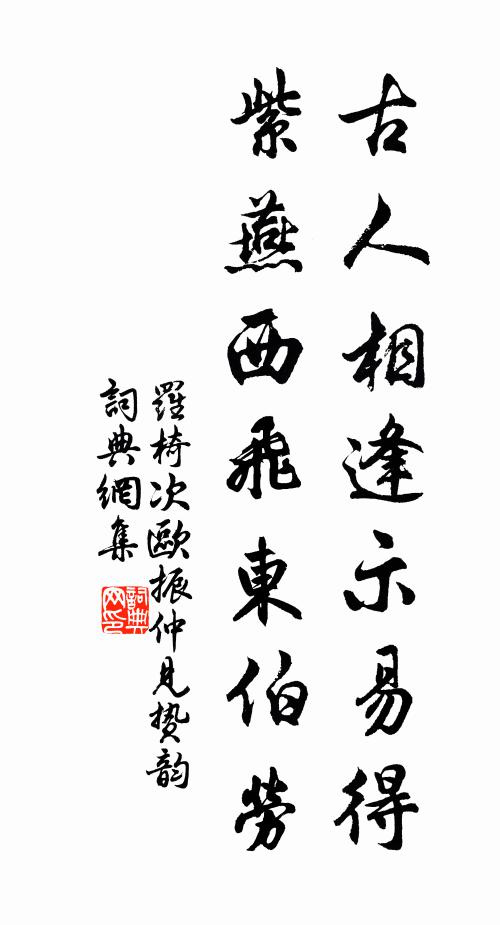 古人相逢示易得
紫燕西飛東伯勞
羅椅次歐振仲見贄韵
詞典網集
詞典网印